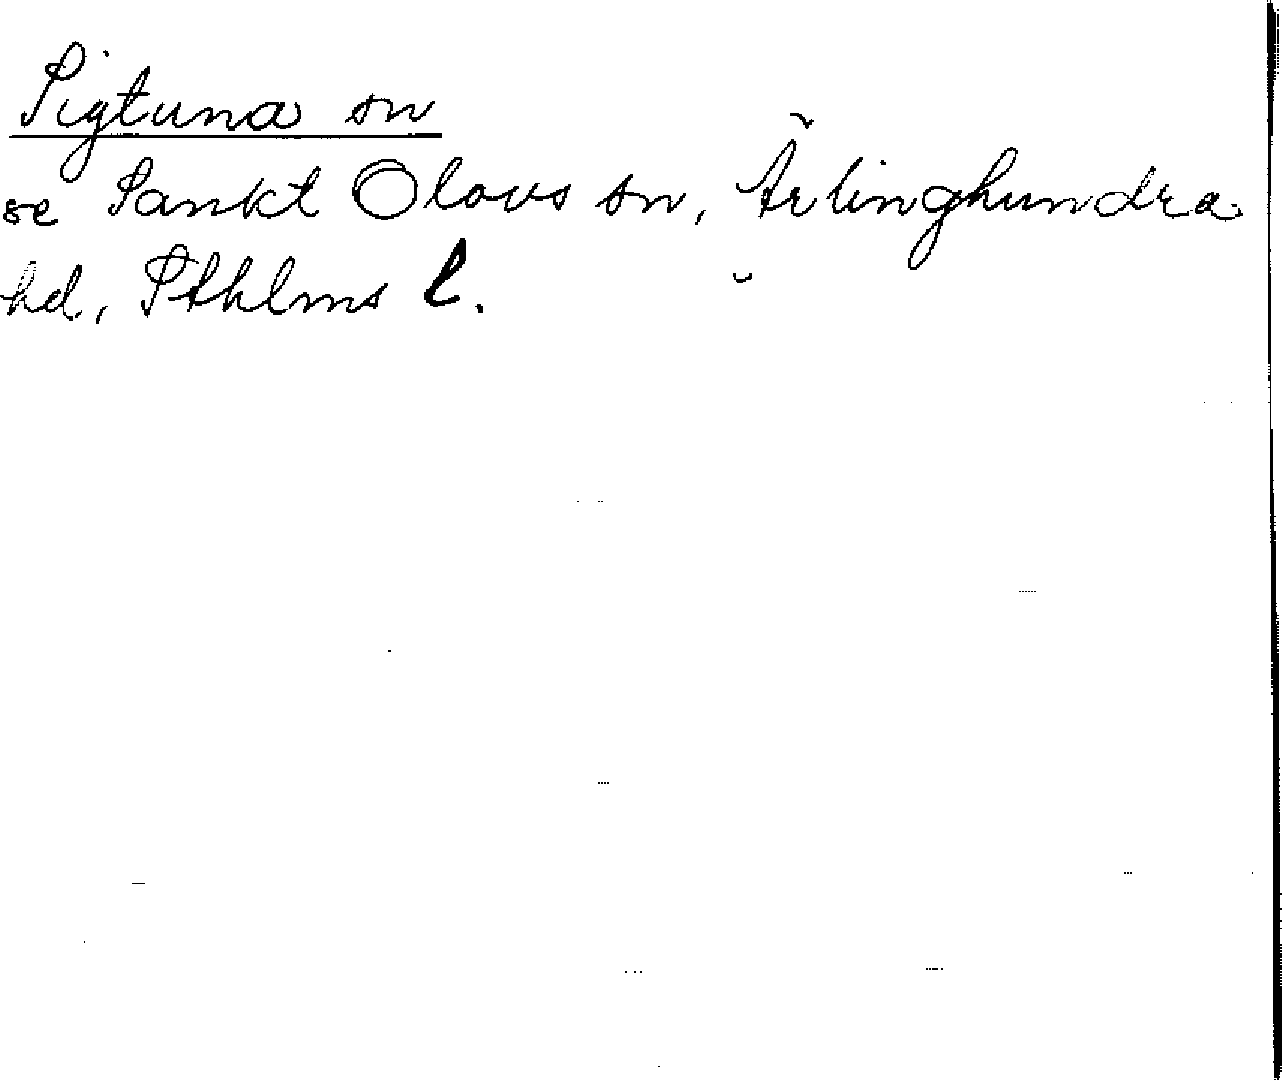 Sigtuna sn
se Sankt Olovs sn, Ärlinghundra
hd, Sthlms l.